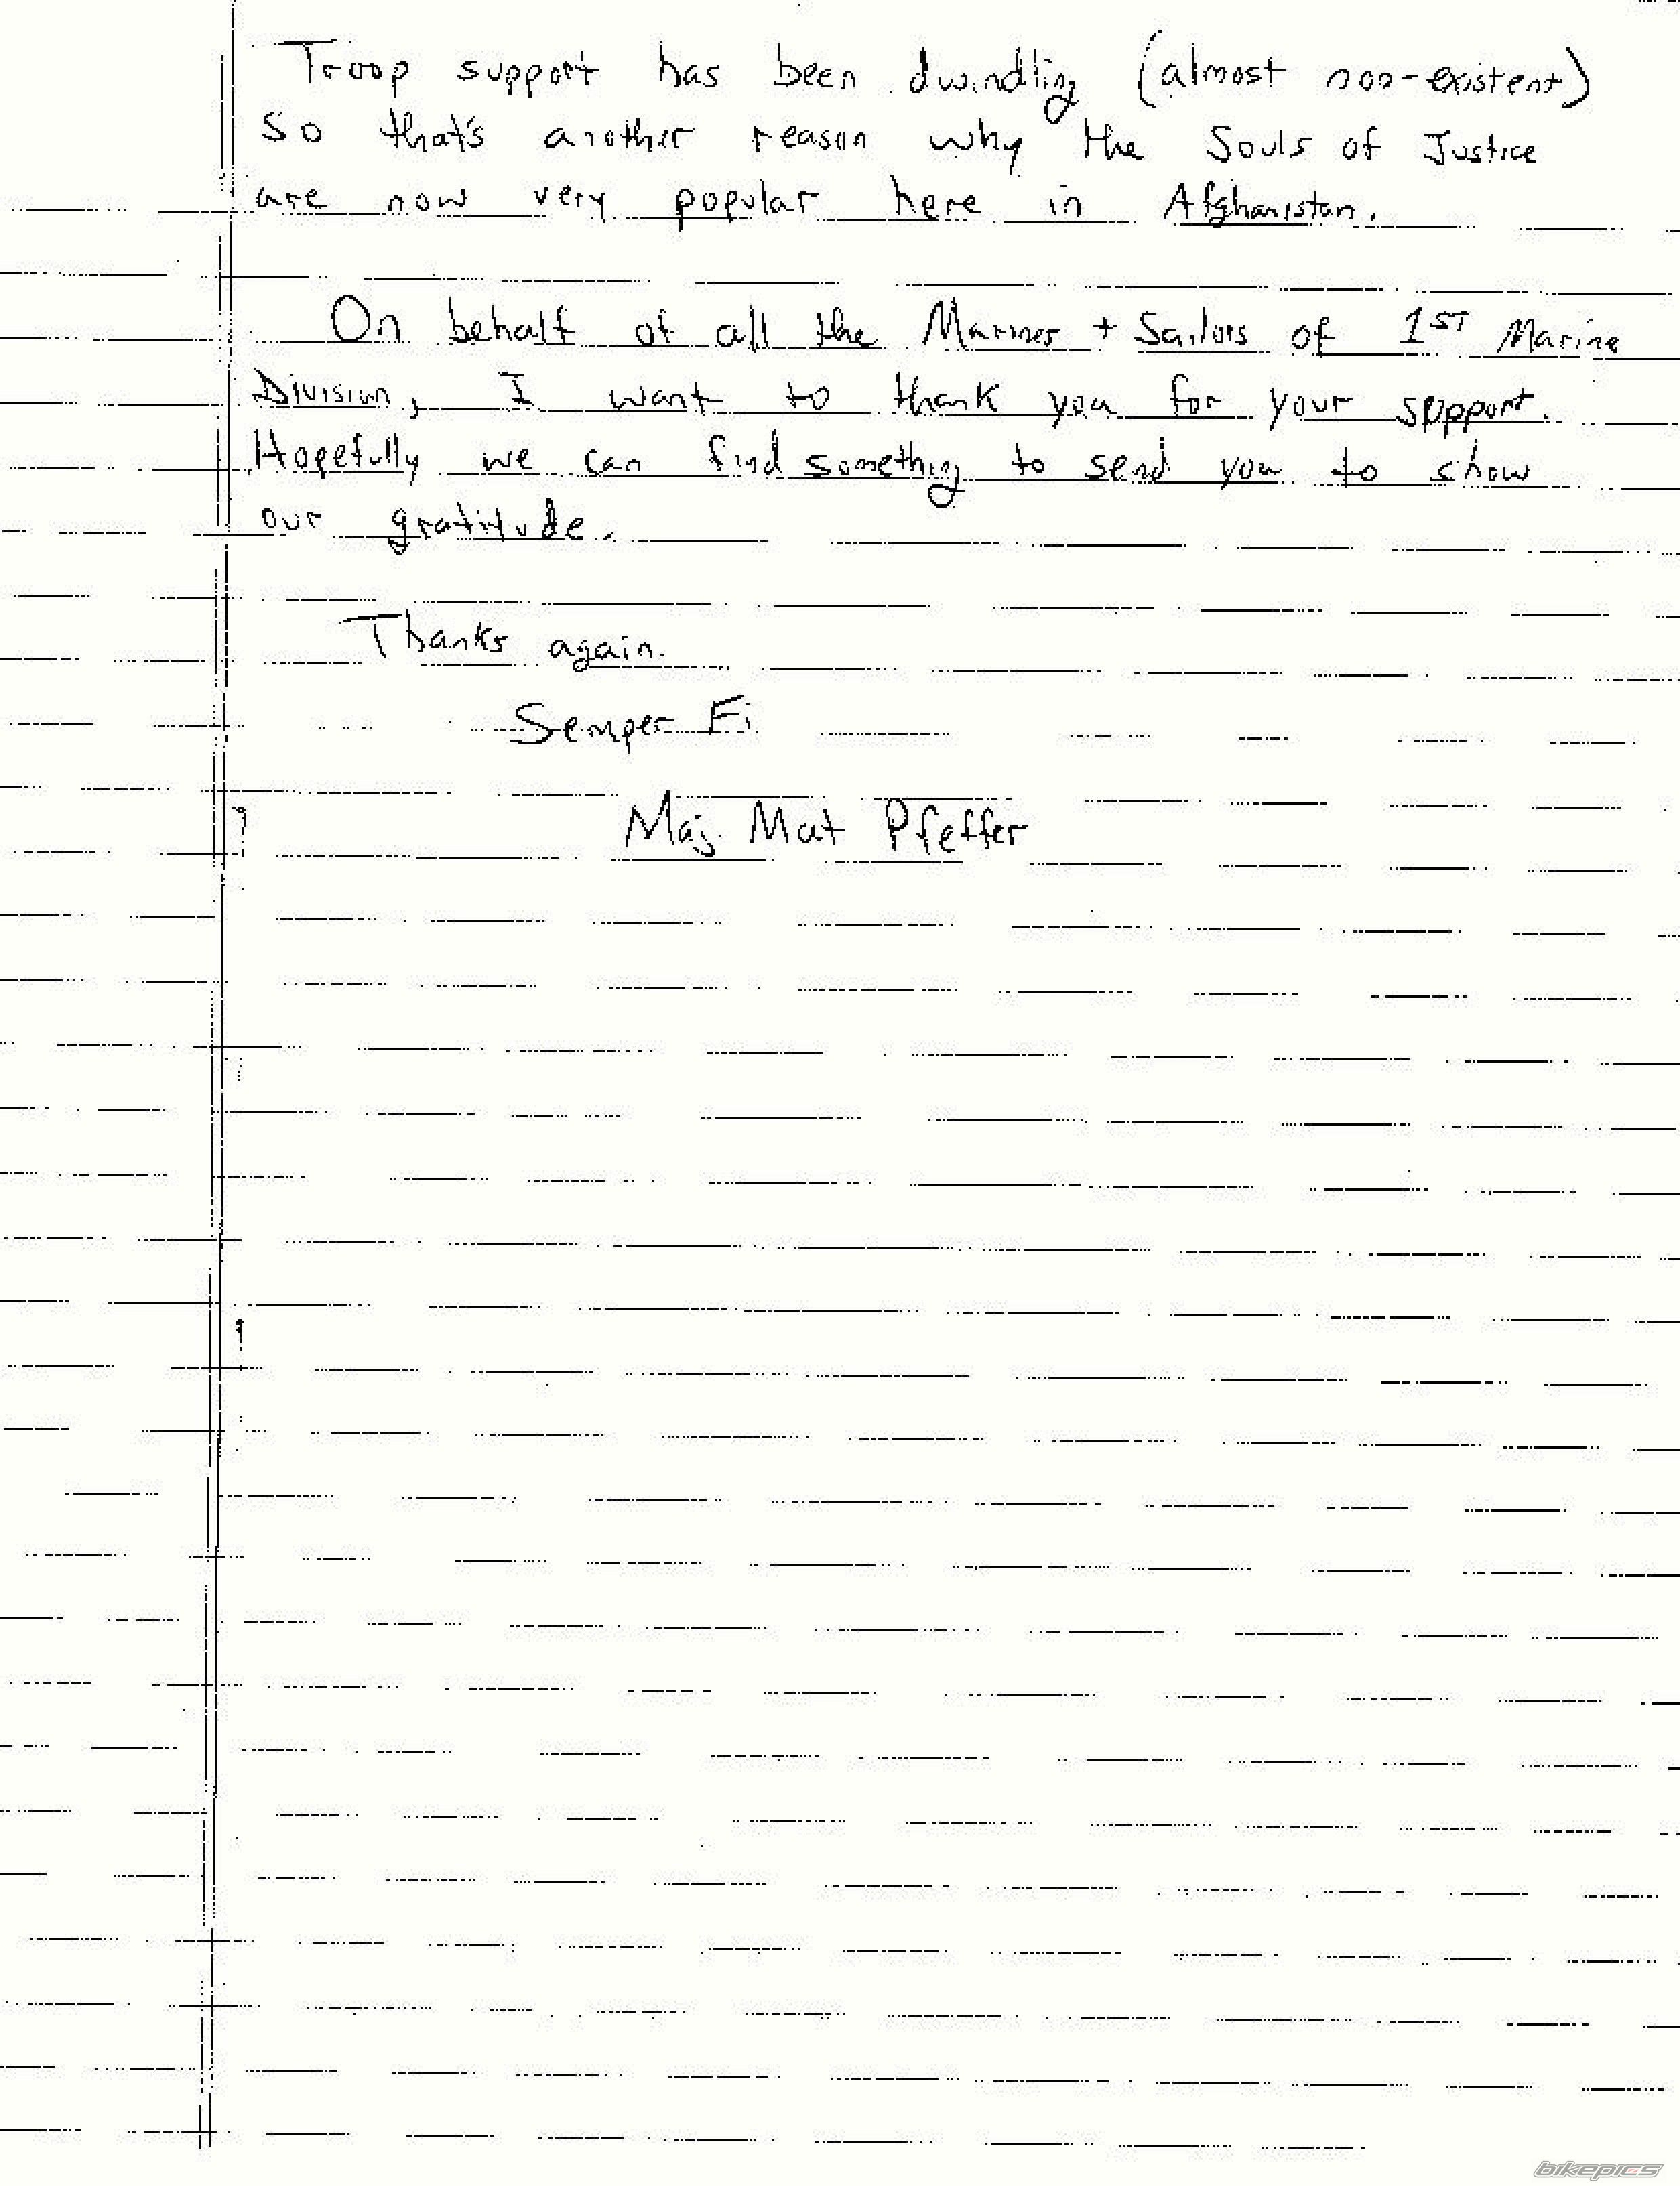 Troop support has been dwindling (almost non-existent)
So that's another reason why the Souls of Justice
are now very popular here in Afghanistan.
On behalf of all the Marines + Sailors of 1ST Marine
Division, I want to thank you for your support.
Hopefully we can find something to send you to show
our gratitude.
Thanks again.
Semper Fi
Maj. Mat Pfeffer
bikepics